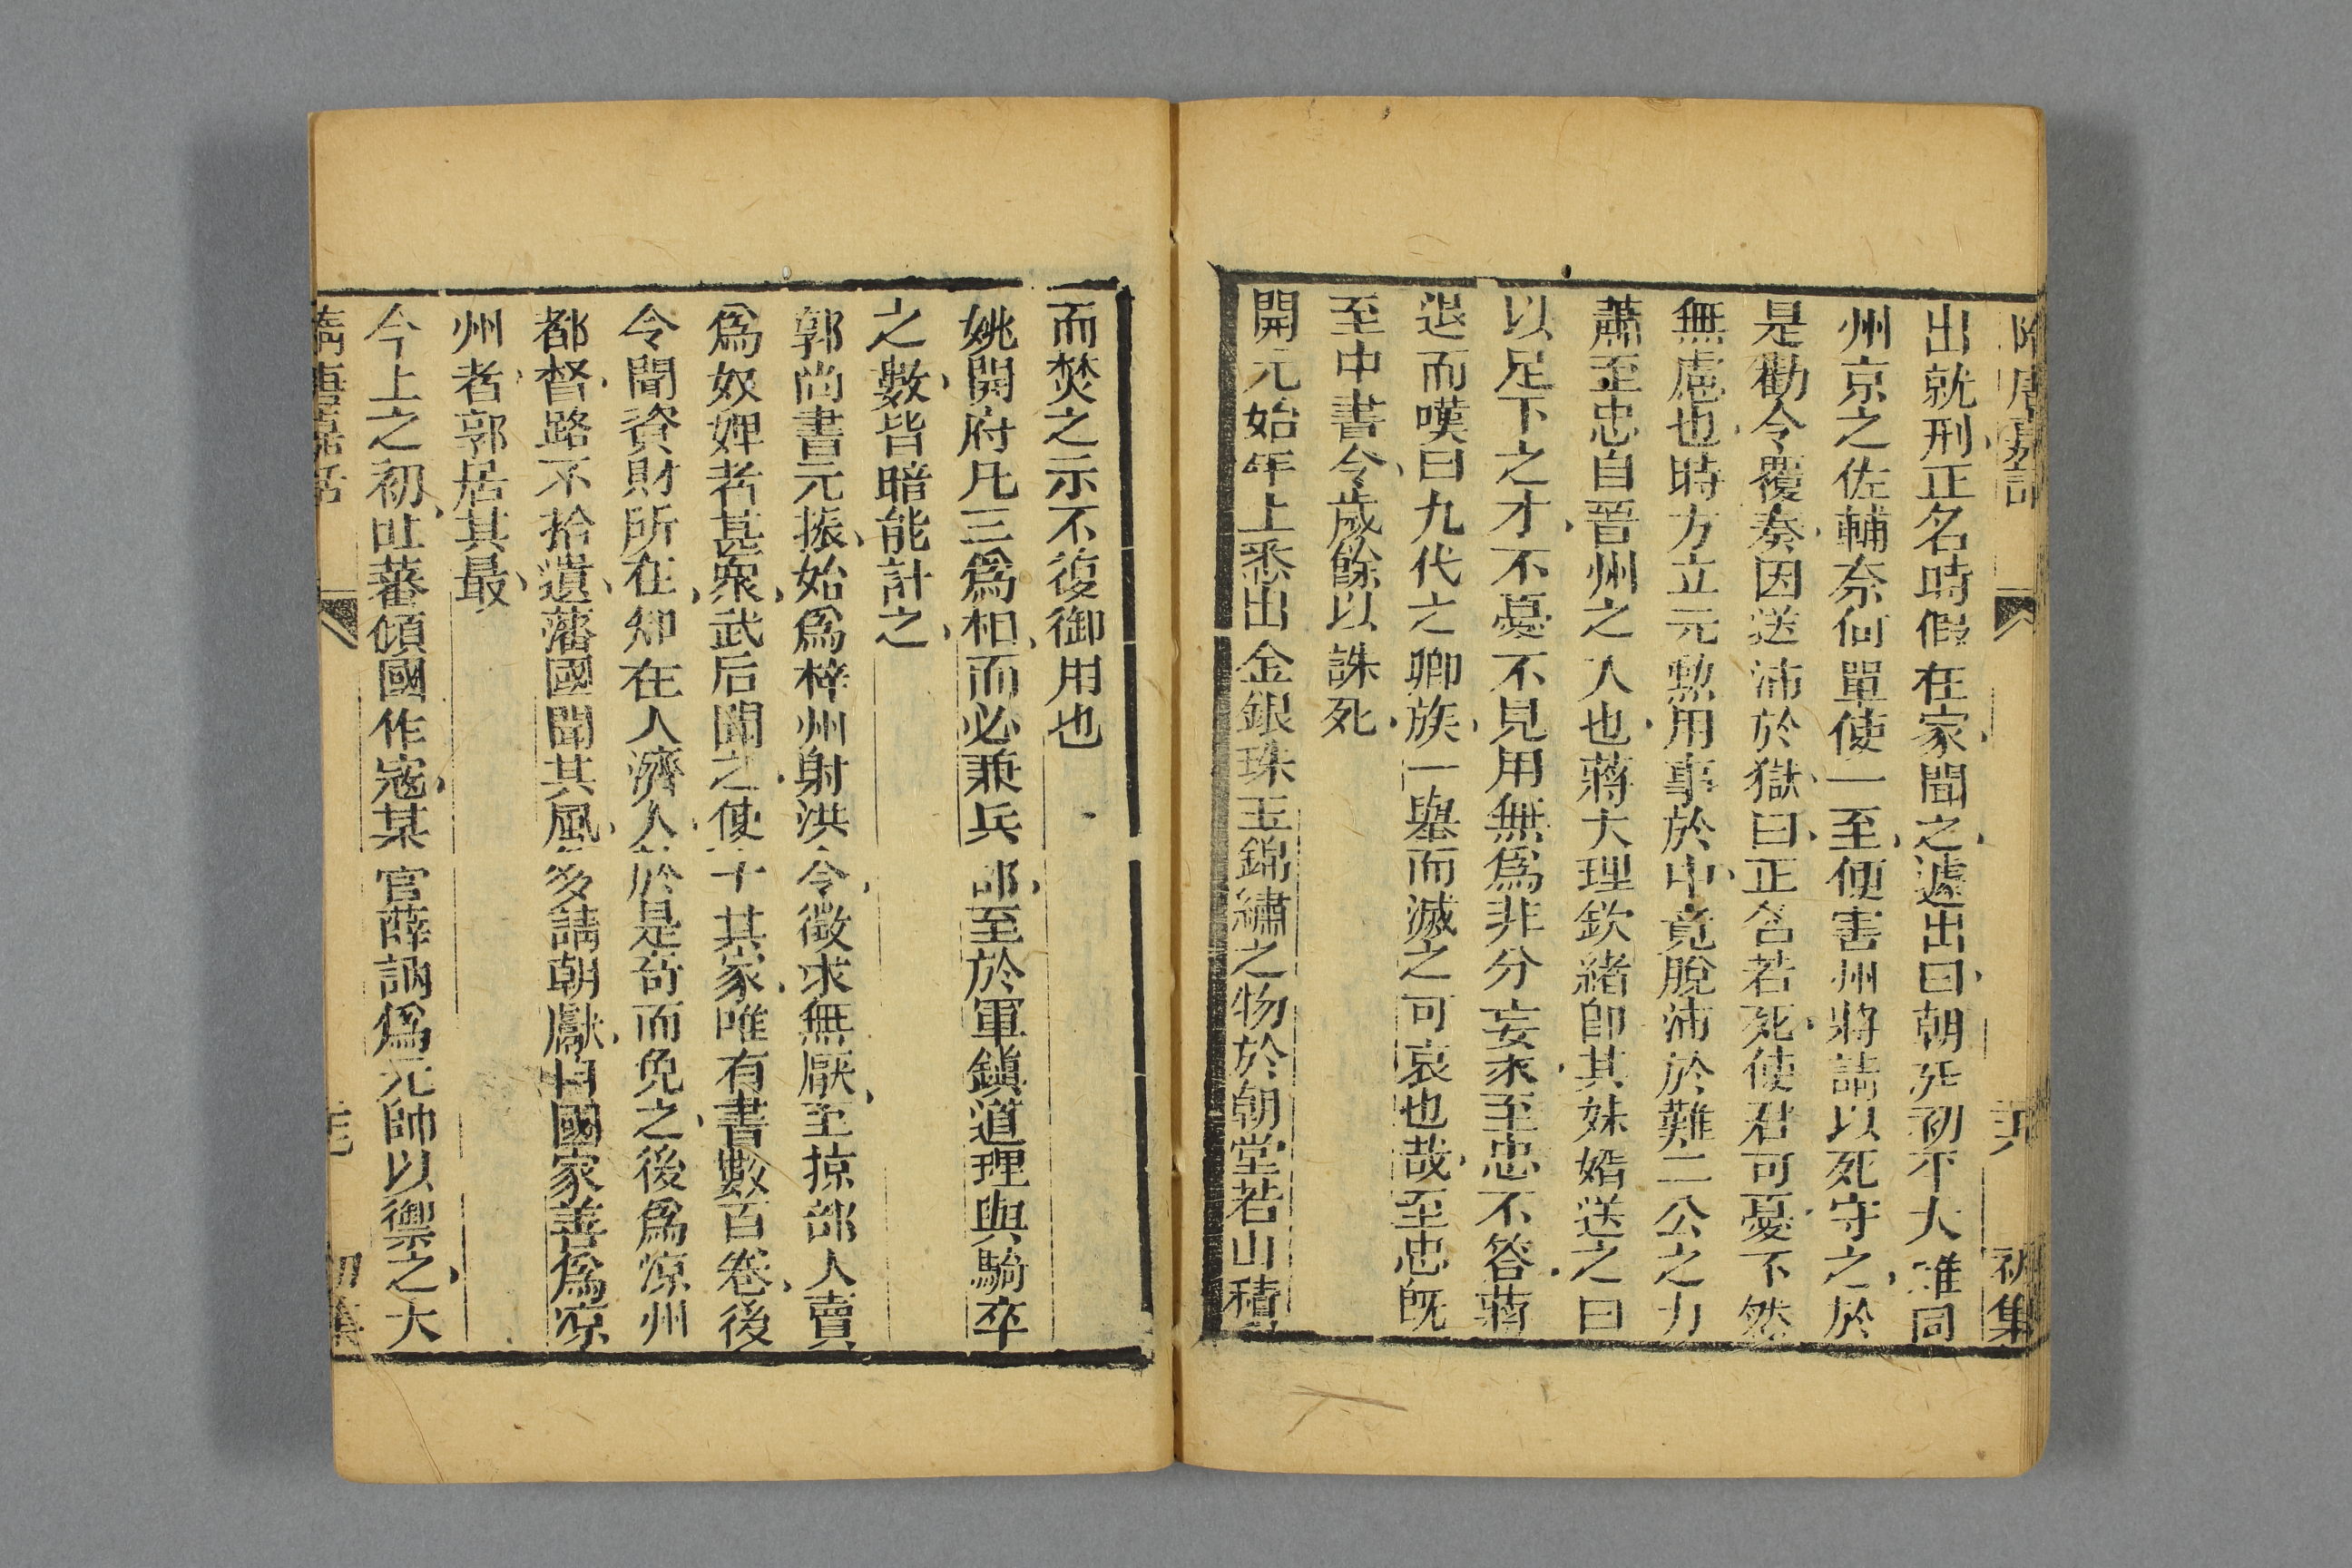 隋唐嘉話
初集
出就刑正名時假在家聞之遽出曰朝死初不大難同
州京之佐輔奈何單使一至便害州將請以死守之於
是勸令覆奏因送沛於獄曰正名若死使君可憂不然
無慮也時方立元勲用事於中竟脫沛於難二公之力
蕭至忠自晉州之入也蔣大理欽緒即其妹婿送之曰
以足下之才不憂不見用無爲非分妄求至忠不答蔣
退而嘆曰九代之卿族一舉而滅之可哀也哉至忠既
至中書令歲餘以誅死
開元始年上悉出金銀珠玉錦繡之物於朝堂若山積
而焚之示不復御用也
姚開府凡三爲相而必兼兵部至於軍鎭道理與騎卒
之數皆暗能計之
郭尚書元振始爲梓州射洪令徵求無厭至掠部人賣
爲奴婢者甚衆武后聞之使其家唯有書數百卷後
令聞資財所在知在人濟人於是奇而免之後爲凉州
都督路不拾遺藩國聞其風多請朝獻自國家善爲凉
州者郭居其最
今上之初吐蕃傾國作寇某官薛訥爲元帥以禦之大
隋唐嘉話
初集